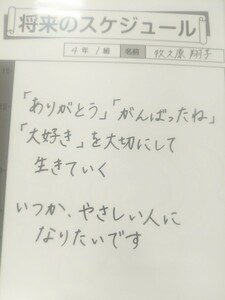 将来のスケジュール
4年 1組 名前 牧之原 翔子
「ありがとう」「がんばったね」
「大好き」を大切にして
生きていく
いつか、やさしい人に
なりたいです